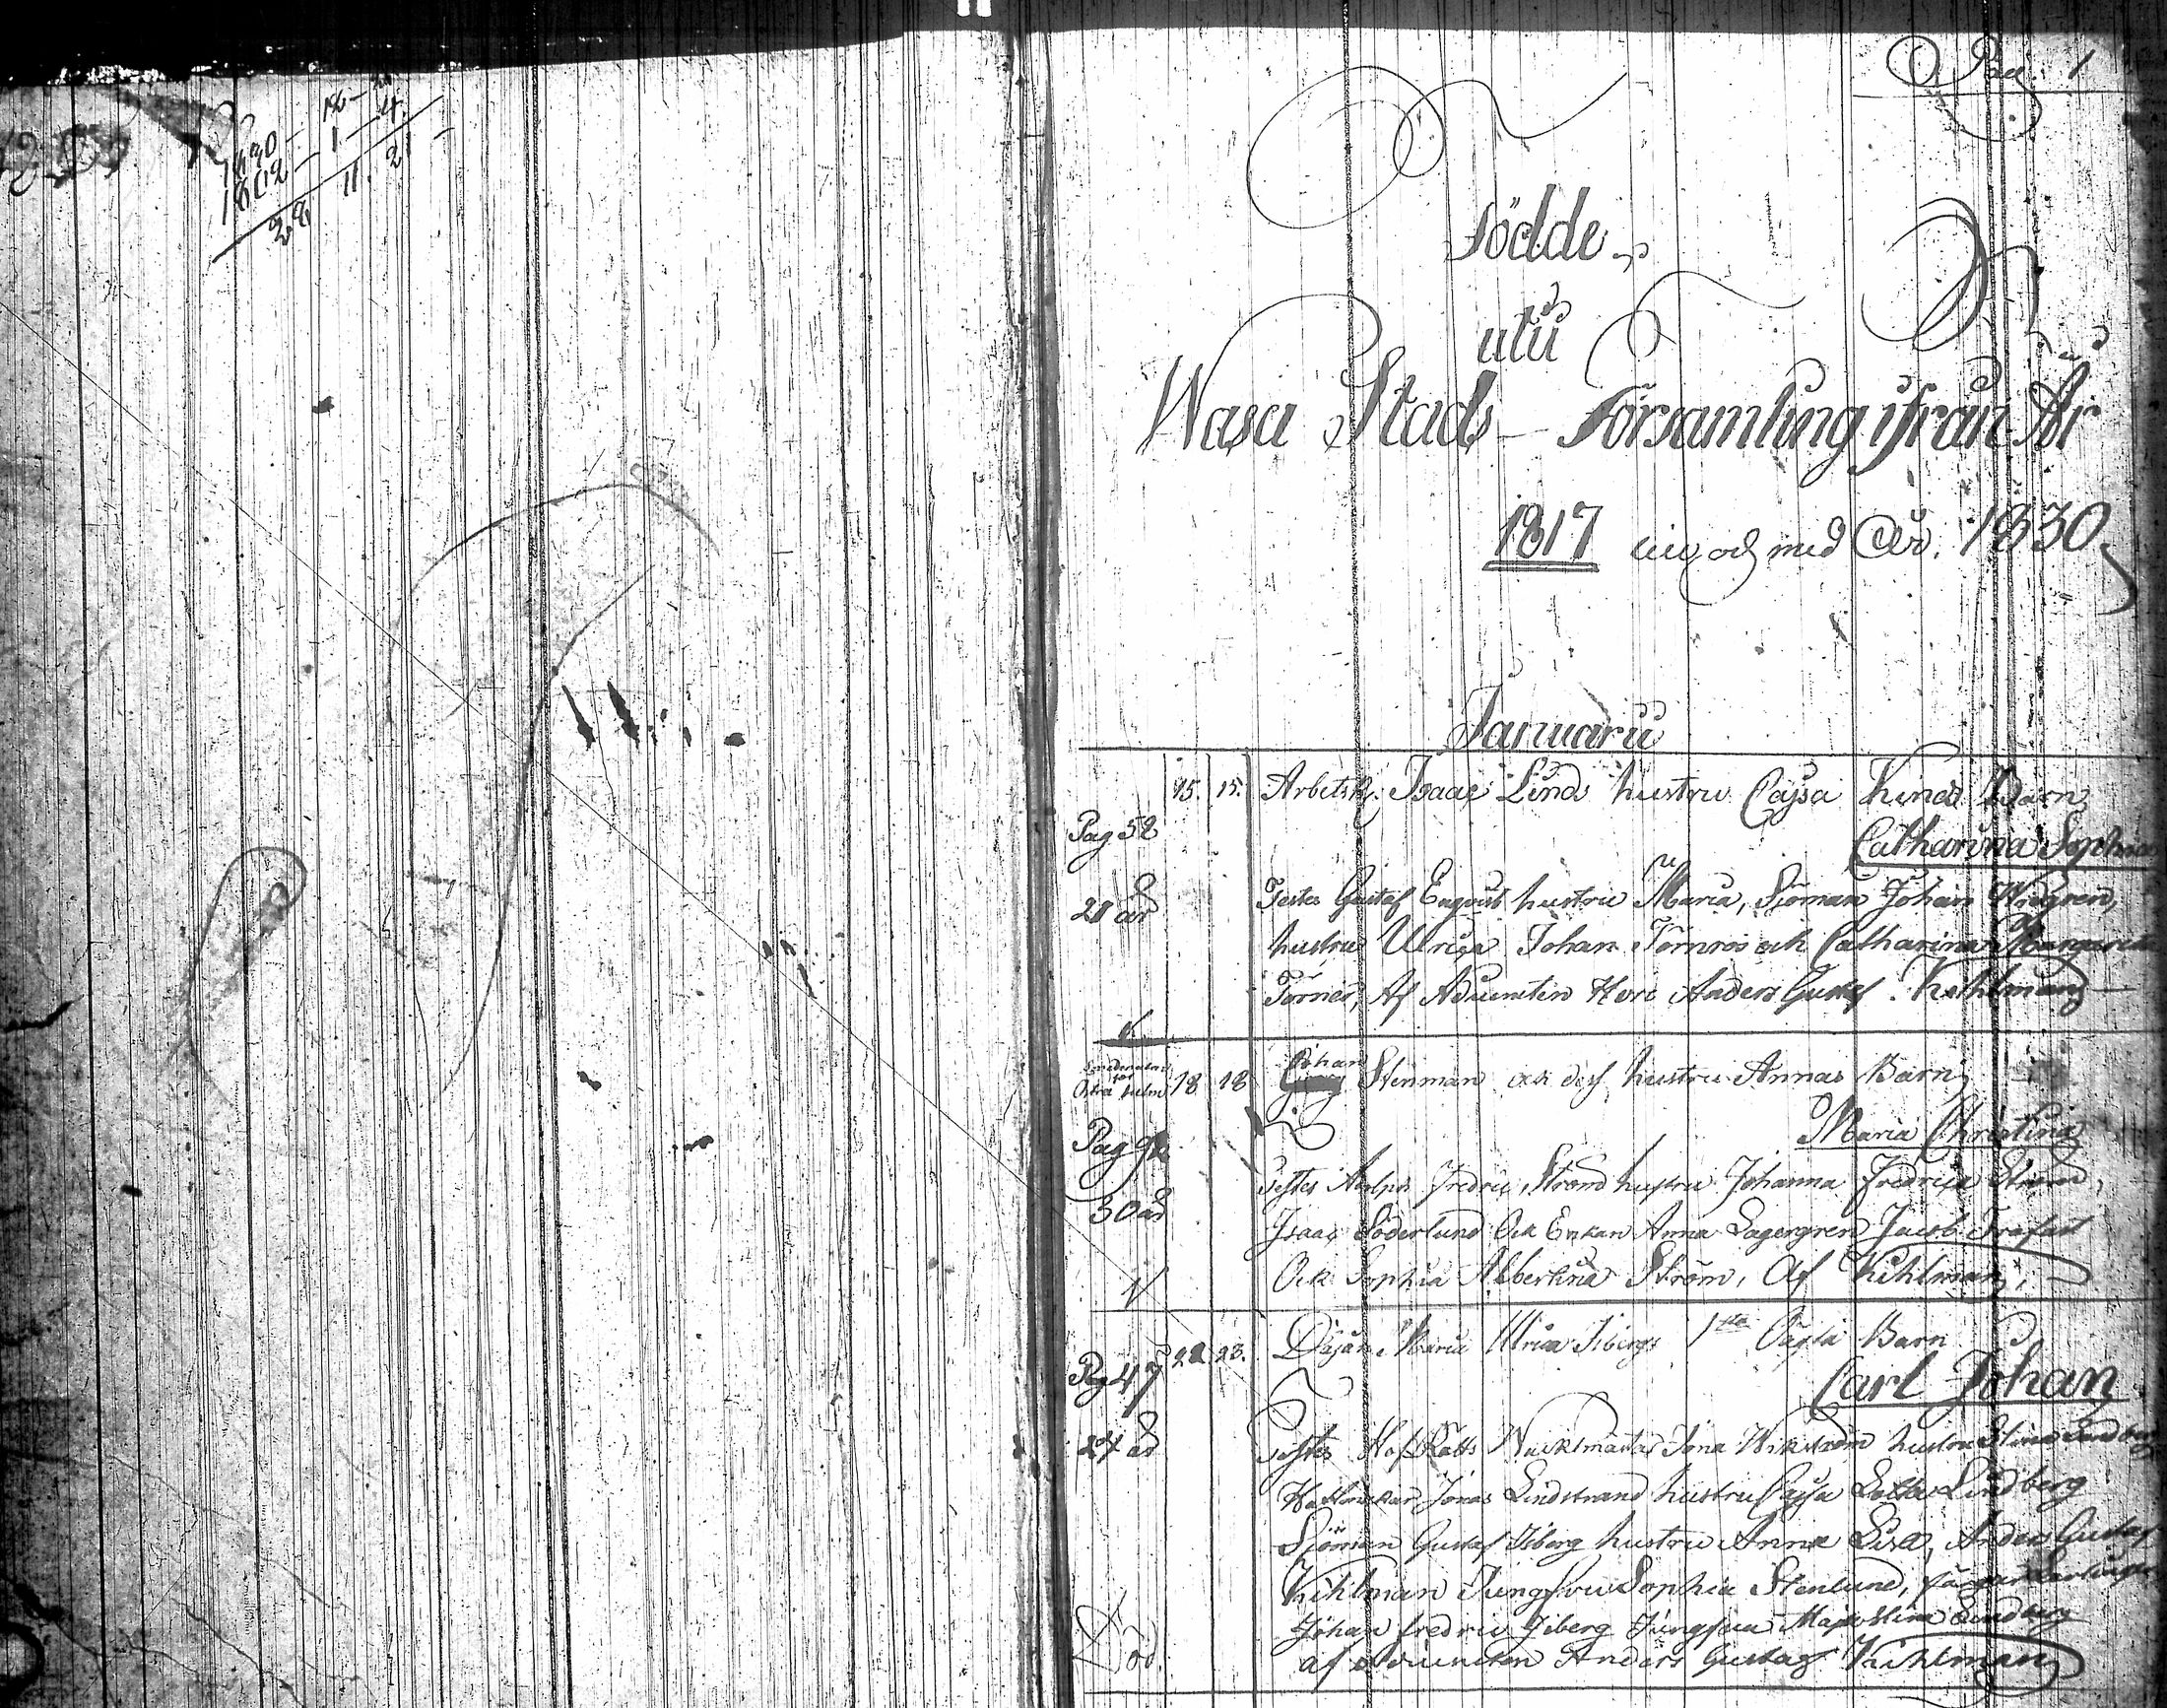 1830 – 12 – 25
1802 – 1 – 4
28 11. 21
Pag. 1
Födde
utii
Wasa Stads Församling ifrån År
1817 och med år 1830
Januarii
15. 15. Arbetsk. Isaac Linds hustru Cajsa Barn
Pag 52
Catharina Sophia
21 år
Testes Gustaf hustru Maria, Sjöman Johan Widgren,
hustru Ulrica Johan Törnros och Catharina Margareta
Törner, Af Adjuncten Herr Anders Gustaf Kihlman
Östra
18 18 Johan Stenman och dess hustru Annas Barn
Pag
Maria Christina
30 år
Testes Adolph Fredric Ström hustru Johanna Fredrica Ström,
Isaac Söderlund Ock Enkan Anna Lagergren Jacob
Ock Sophia Albertina Ström, Af Kihlman,
Pag 47
22 23. Maria Ulrica Sibergs 1sta Barn
Carl Johan
24 år
Testes HofRätts Wacktmästar Jona Wikström hustru Stina
Jonas Lindstrand hustru Cajsa Lotta Lindberg
Sjöman Gustaf Siberg hustru Anna Lisa, Anders Gustaf
Kihlman Jungfru Sophia Stenlund,
Johan fredric Siberg Jungfru Maja Stina Lindberg
af Adjuncten Anders Gustaf Kihlman
Död